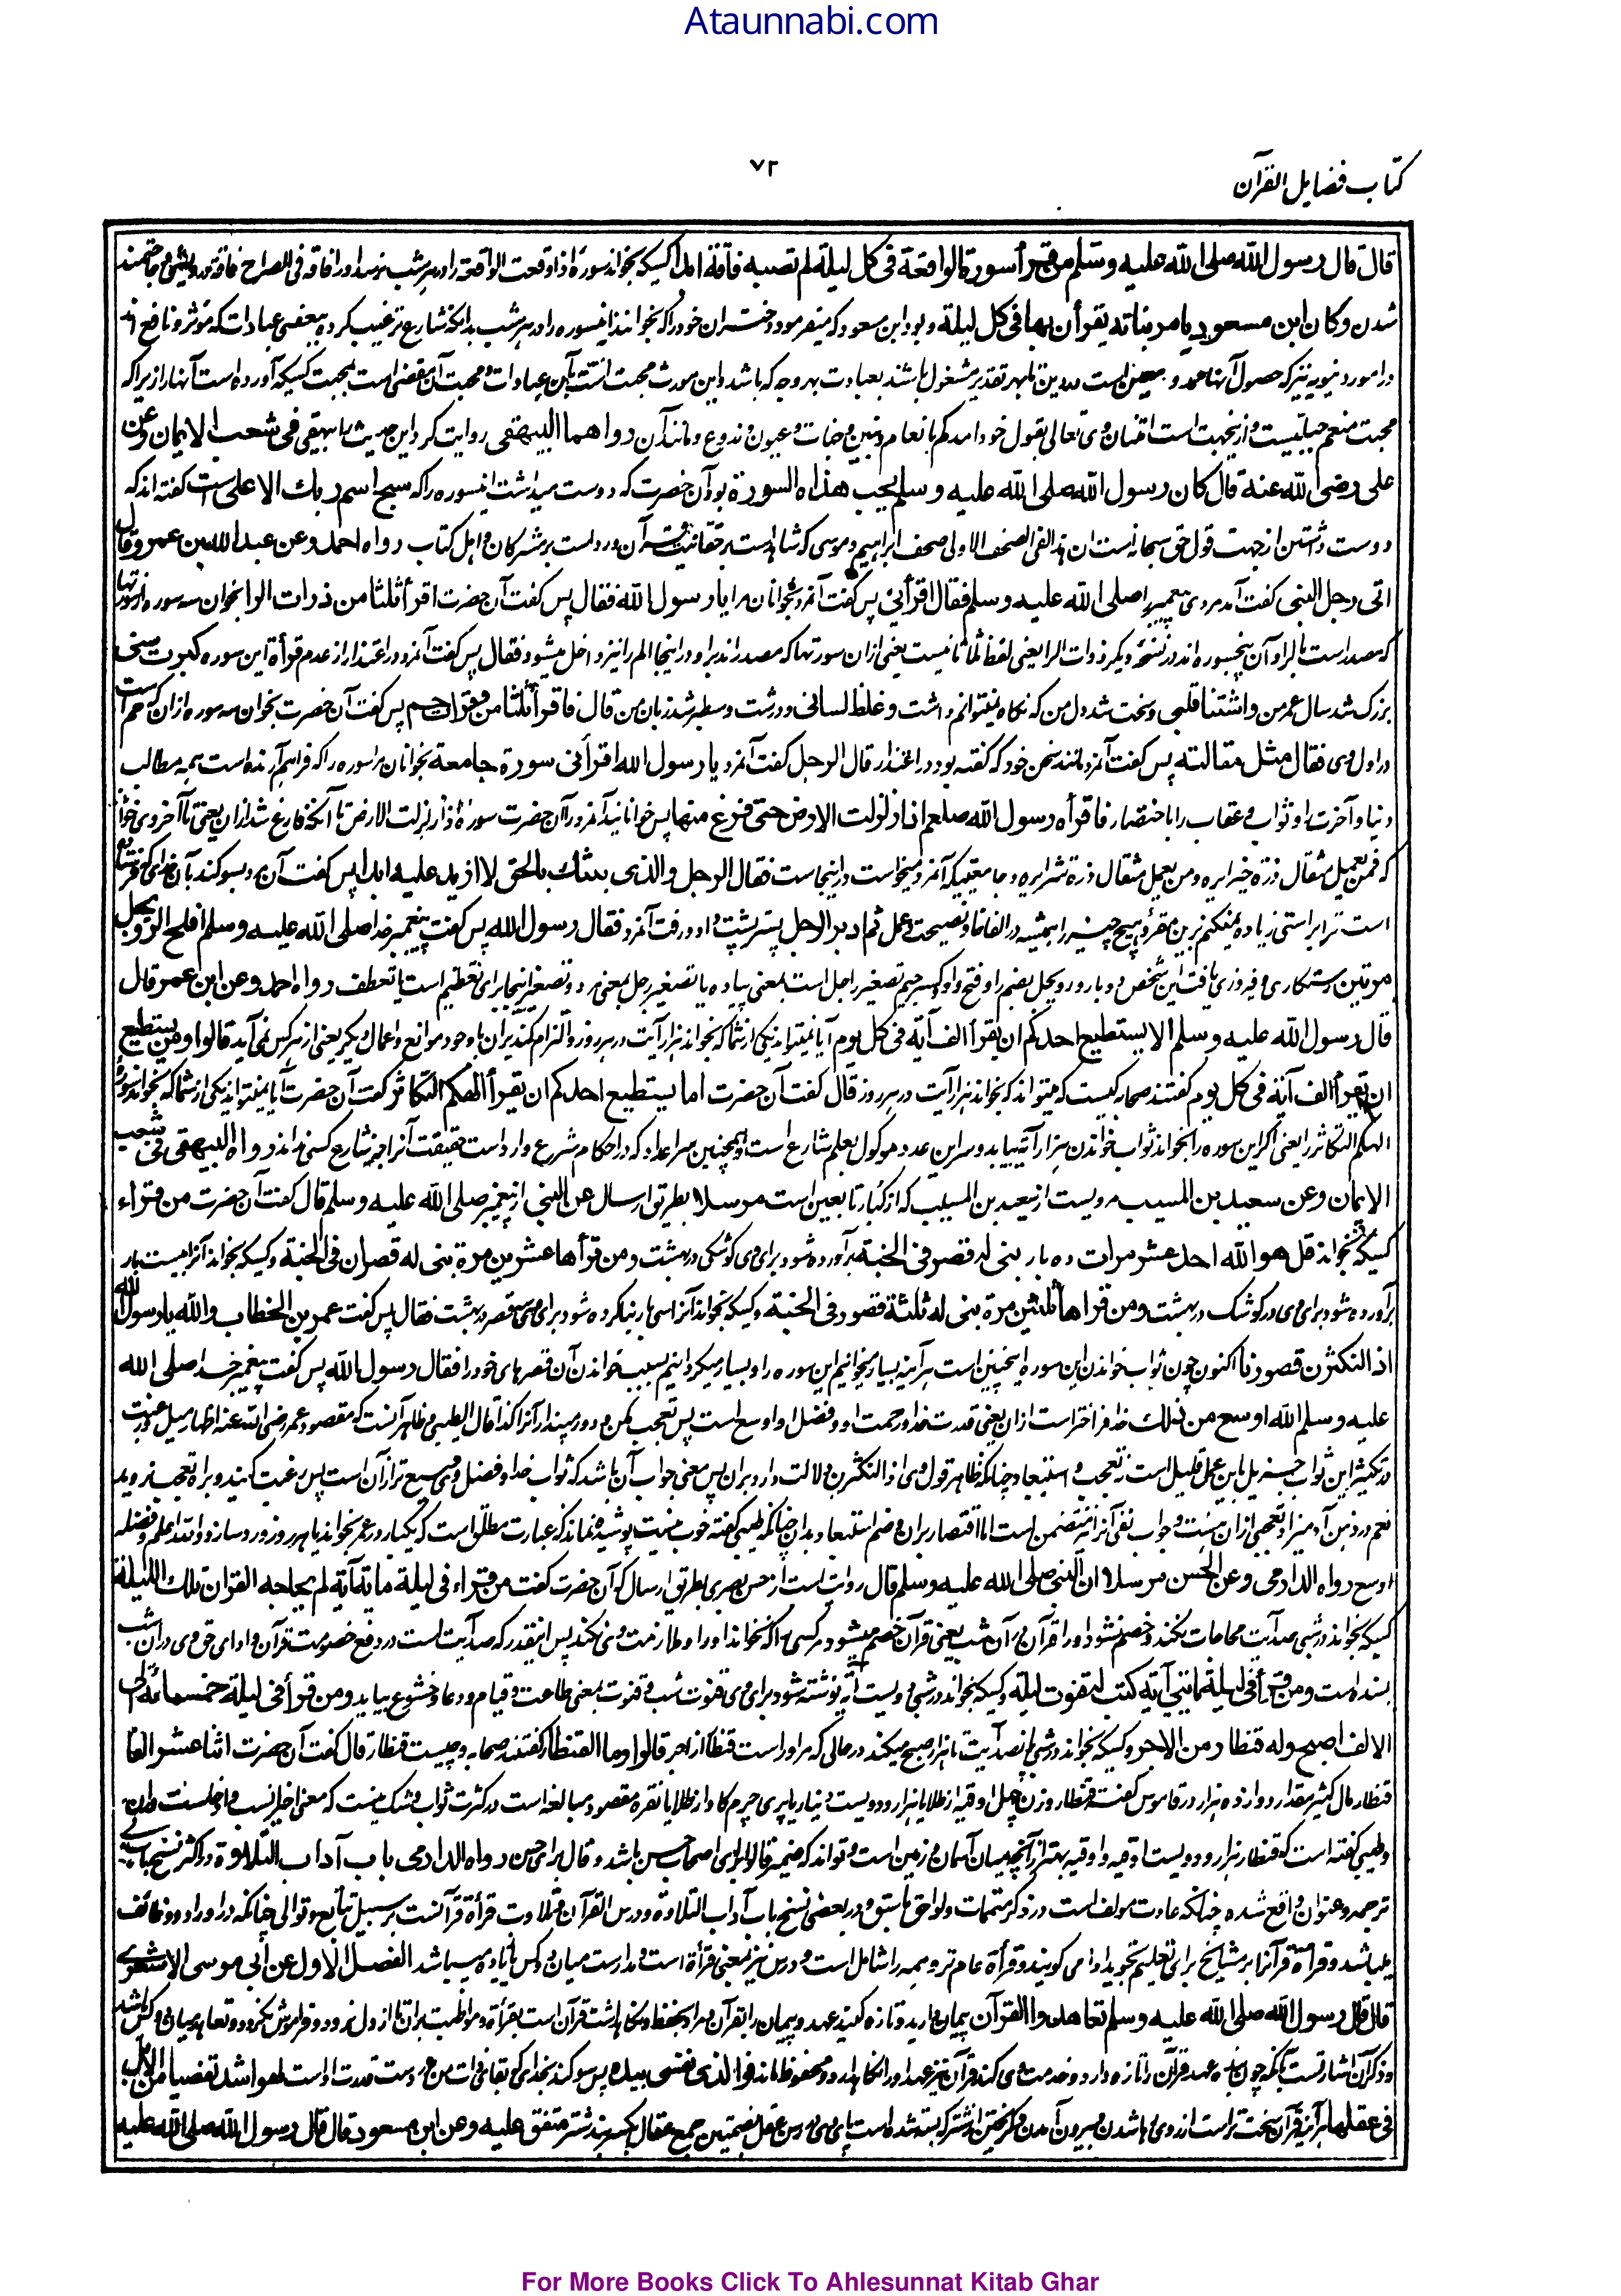 Ataunnabi.com
کتاب فضایل القرآن
۷۲
قال قال رسول الله صلی الله علیه وسلم من قرأ سورة الواقعة فی کل لیلة لم تصبه فاقة ابدا کسیکه بخواند سورهٔ اذا وقعت الواقعة را در هر شب نرسد او را فاقه فی الصراح فاقه درویشی و حاجتمند
شدن وکان ابن مسعود یأمر بناته یقرأن بها فی کل لیلة و بود ابن مسعود که میفرمود دختران خود را که بخوانند اینسوره را در هر شب بدانکه شارع ترغیب کرده ببعضی عبادات که مؤثر و نافع اند
در امور دنیویه نیز که حصول آنها ممد و معین است در دین تا بهر تقدیر مشغول باشند بعبادت بهر وجه که باشد و این مورث محبت است بآن عبادات و محبت آن مفضی است بمحبت کسیکه آورده است آنها را زیرا که
محبت منعم جبلیست و ازینجهت است امتنان وی تعالی بقول خود امدکم بانعام و بنین و جنات و عیون و زروع و مانند آن رواهما البیهقی روایت کرد این حدیث را بیهقی فی شعب الایمان وعن
علی رضی الله عنه قال کان رسول الله صلی الله علیه وسلم یحب هذه السورة بود آن حضرت که دوست میداشت اینسوره را که سبح اسم ربك الاعلی است گفته اند که
دوست داشتن از جهت قول حق سبحانه است ان هذا لفی الصحف الاولی صحف ابراهیم و موسی که شاهد است بر حقانیت قرآن و رد است بر مشرکان و اهل کتاب رواه احمد وعن عبد الله بن عمرو قال
اتی رجل النبی گفت آمد مردی پیغمبر را صلی الله علیه وسلم فقال اقرأنی پس گفت آنمرد بخوانان مرا یا رسول الله فقال پس گفت آن حضرت اقرأ ثلثا من ذوات الرا بخوان سه سوره از سورتها
که مصدر است بالرا و آن پنجسوره اند و در نسخه دیگر ذوات الرا یعنی لفظ ثلثا نیست یعنی ازان سورتها که مصدر اند برا و در اینجا المر نیز داخل میشود فقال پس گفت آنمرد در اعتذار از عدم قرأة این سوره کبرت سنی
بزرگ شد سال عمر من واشتد قلبی و سخت شد دل من که نگاه نمیتوانم داشت وغلظ لسانی و درشت و سطبر شد زبان من قال فاقرأ ثلثا من ذوات حم پس گفت آن حضرت بخوان سه سوره ازان که حم است
در اول وی فقال مثل مقالته پس گفت آنمرد مانند سخن خود که گفته بود در اعتذار قال الرجل گفت آنمرد یا رسول الله اقرأنی سورة جامعة بخوانان مرا سوره را که فراهم آرنده است همه مطالب
دنیا و آخرت را و ثواب و عقاب را باختصار فاقرأه رسول الله صلعم اذا زلزلت الارض حتی فرغ منها پس خوانانید آنمرد را آن حضرت سورهٔ اذا زلزلت الارض تا آنکه فارغ شد ازان یعنی تا آخر وی خواند
که فمن یعمل مثقال ذرة خیرا یره ومن یعمل مثقال ذرة شرا یره و جامعیتیکه آنمرد میخواست در اینجاست فقال الرجل والذی بعثك بالحق لا ازید علیه ابدا پس گفت آن مرد سوگند بآن خدای که فرستاده
است ترا براستی زیاده نمیکنم برین مقرؤ هیچ چیز را همیشه در الفاظ و نصیحت و عمل ثم ادبر الرجل پستر پشت داد و رفت آنمرد فقال رسول الله پس گفت پیغمبر خدا صلی الله علیه وسلم افلح الرویجل
مرتین رستگاری و فیروزی یافت این شخص دو بار و رویجل بضم را و فتح واو و کسر جیم تصغیر راجل است بمعنی پیاده یا تصغیر رجل بمعنی مرد و تصغیر اینجا برای تعظیم است یا تعطف رواه احمد وعن ابن عمر قال
قال رسول الله علیه وسلم الا یستطیع احدکم ان یقرأ الف آیة فی کل یوم آیا نمیتواند یکی از شما که بخواند هزار آیت در هر روز و التزام کند بران باوجود موانع و اعمال دیگر یعنی از هر کس نمی آید قالوا ومن یستطیع
ان یقرأ الف آیة فی کل یوم گفتند صحابه کیست که میتواند که بخواند هزار آیت در هر روز قال گفت آن حضرت اما یستطیع احدکم ان یقرأ الهکم التکاثر گفت آن حضرت آیا نمیتواند یکی از شما که بخواند سورهٔ
الهکم التکاثر را یعنی اگر این سوره را بخواند ثواب خواندن هزار آیت بیابد و سر این عدد موکول بعلم شارع است و همچنین سر اعداد که در احکام شرع وارد است حقیقت آنرا جز شارع کسی نداند رواه البیهقی فی شعب
الایمان وعن سعید بن المسیب مرویست از سعید بن المسیب که از کبار تابعین است مرسلا بطریق ارسال عن النبی از پیغمبر صلی الله علیه وسلم قال گفت آن حضرت من قراء
کسیکه بخواند قل هو الله احد عشر مرات ده بار بنی له قصر فی الجنة برآورده شود برای وی کوشکی در بهشت ومن قرأها عشرین مرة بنی له قصران فی الجنة و کسیکه بخواند آنرا بیست بار
برآورده شود برای وی دو کوشک در بهشت ومن قرأها ثلثین مرة بنی له ثلثة قصور فی الجنة و کسیکه بخواند آنرا سی بار بنا کرده شود برای وی سه قصر در بهشت فقال پس گفت عمر بن الخطاب والله یا رسول الله
اذا لنکثرن قصورنا اکنون چون ثواب خواندن این سوره اینچنین است هر آینه بسیار میخوانیم این سوره را و بسیار میگردانیم بسبب خواندن آن قصرهای خود را فقال رسول الله پس گفت پیغمبر خدا صلی الله
علیه وسلم الله اوسع من ذلك خدا فراختر است ازان یعنی قدرت خدا و رحمت او و فضل او اوسع است پس تعجب مکن و دور مپندار آنرا کذا قال الطیبی و ظاهر آنست که مقصود عمر رضی الله عنه اظهار میل و رغبت
در تکثیر این ثواب جزیل باین عمل قلیل است نه تعجب و استبعاد چنانکه ظاهر قول وی اذا لنکثرن دلالت دارد بران پس معنی جواب آن باشد که ثواب خدا و فضل وی وسیع تر ازان است پس رغبت کنید و براه تعجب نروید
نعم در ذهن آدمیزاد تعجبی ازان هست و جواب نفی آنرا نیز متضمن است اما اقتصار بران و ضم استبعاد بدان چنانکه طیبی گفته خوب نیست پوشیده نماند که عبارت مطلق است که یکبار در عمر بخواند یا هر روز ورد سازد والله اعلم وفضله
اوسع رواه الدارمی وعن الحسن مرسلا ان النبی صلی الله علیه وسلم قال روایت است از حسن بصری بطریق ارسال که آن حضرت گفت من قراء فی لیلة مایة آیة لم یحاجه القرآن تلك اللیلة
کسیکه بخواند در شبی صد آیت محاجات نکند و خصم نشود او را قرآن در آن شب یعنی قرآن خصم میشود هر کسی را که نخواند او را و ملازمت وی نکند پس اینقدر که صد آیت است در دفع خصومت قرآن و ادای حق وی در آن شب
بسنده است ومن قرأ فی لیلة مائتی آیة کتب له قنوت لیلة و کسیکه بخواند در شبی دویست آیه نوشته شود برای وی قنوت شب و قنوت بمعنی طاعت و قیام و دعا و خشوع بیاید ومن قرأ فی لیلة خمسمائة الی
الالف اصبح وله قنطار من الاجر و کسیکه بخواند در شبی پانصد آیت تا هزار صبح میکند در حالی که مر او راست قنطار از اجر قالوا وما القنطار گفتند صحابه و چیست قنطار قال گفت آن حضرت اثنا عشر الفا
قنطار مال کثیر بمقدار دوازده هزار در قاموس گفت قنطار وزن چهل اوقیه از طلا یا هزار و دویست دینار یا پری چرم گاو از طلا یا نقره مقصود مبالغه است در کثرت ثواب و شک نیست که معنی اخیر انسب و
وطیبی گفته است که قنطار هزار و دویست اوقیه و اوقیه بهتر از آنچه میان آسمان و زمین است و تواند که ضمیر قالوا برای اصحاب حسن باشد و قال برای حسن رواه الدارمی باب آداب التلاوة و در اکثر نسخ باب بی
ترجمه و عنوان واقع شده چنانکه عادت مولف است در ذکر متممات و لواحق ما سبق و در بعضی نسخ باب آداب التلاوة و درس القرآن و تلاوت قرأة قرآنست بر سبیل تتابع و توالی چنانکه در اوراد و وظائف
میباشد و قرأة قرآن را بر مشایخ برای تعلیم تجوید ادا می گویند و قرأة عام تر و همه را شامل است و درس نیز بمعنی قرأة است و مدارست میان دو کس یا زیاده میباشد الفصل الاول عن ابی موسی الاشعری
قال قال رسول الله صلی الله علیه وسلم تعاهدوا القرآن پیمان دارید و تازه کنید عهد و پیمان را بقرآن مراد بحفظ و نگاهداشت قرآن است بقرأة و مواظبت بران تا از دل نرود و فراموش نگردد و تعاهد میان دو کس باشد
و ذکر آن اشارتست بآنکه چون بنده عهد قرآن را تازه دارد و خدمت وی کند قرآن نیز عهد او را نگاهدارد و محفوظ ماند فوالذی نفسی بیده پس سوگند بخدای که بقای ذات من در دست قدرت اوست لهو اشد تفصیا من الابل
فی عقلها هر آینه قرآن سخت تر است از روی رها شدن و بیرون آمدن و گریختن از شتر که بسته شده است پای وی در رسن عقل بضمتین جمع عقال بکسر بند شتر متفق علیه وعن ابن مسعود قال قال رسول الله صلی الله علیه
For More Books Click To Ahlesunnat Kitab Ghar